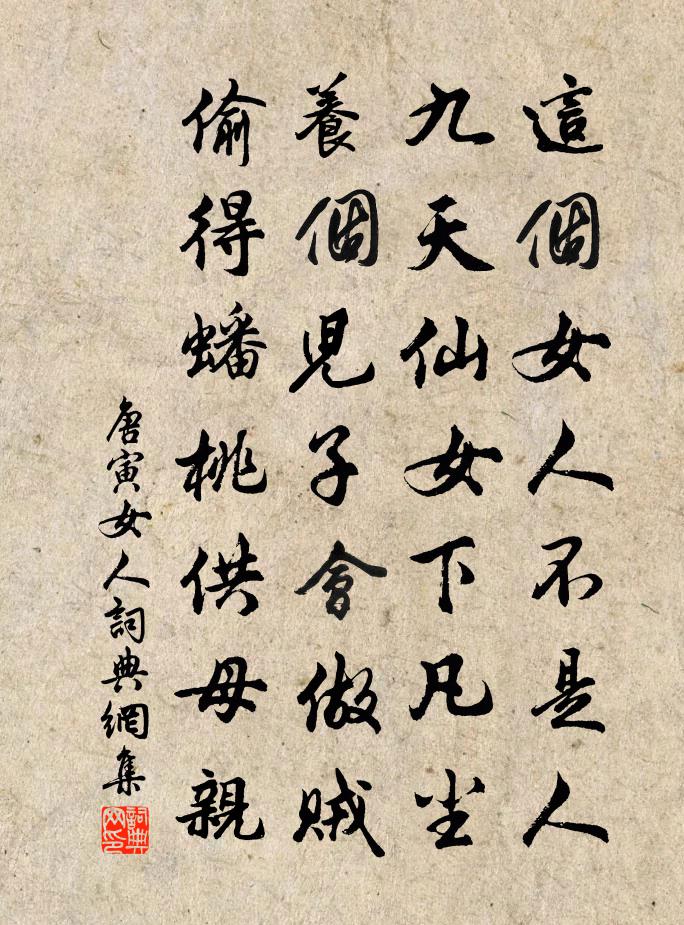 這個女人不是人
九天仙女下凡尘
養個児子會做賊
偷得蟠桃供母親
唐寅女人詞典網集
詞典網印